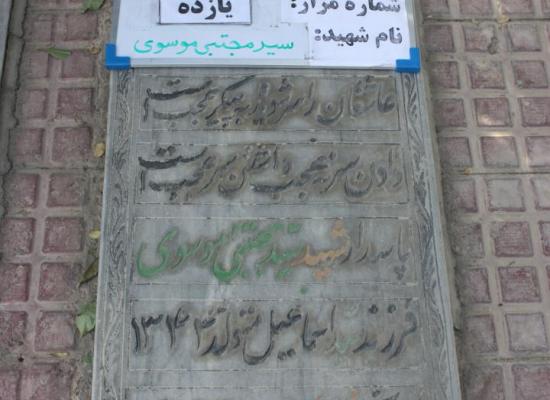 شماره مزار: یازده
نام شهید: سیدمجتبی موسوی
عاشقان را سر شوریده به پیکر عجب است
دادن سر نه عجب داشتن سر عجب است
پاسدار شهید سید مجتبی موسوی
فرزند سید اسماعیل متولد ۱۳۴۴